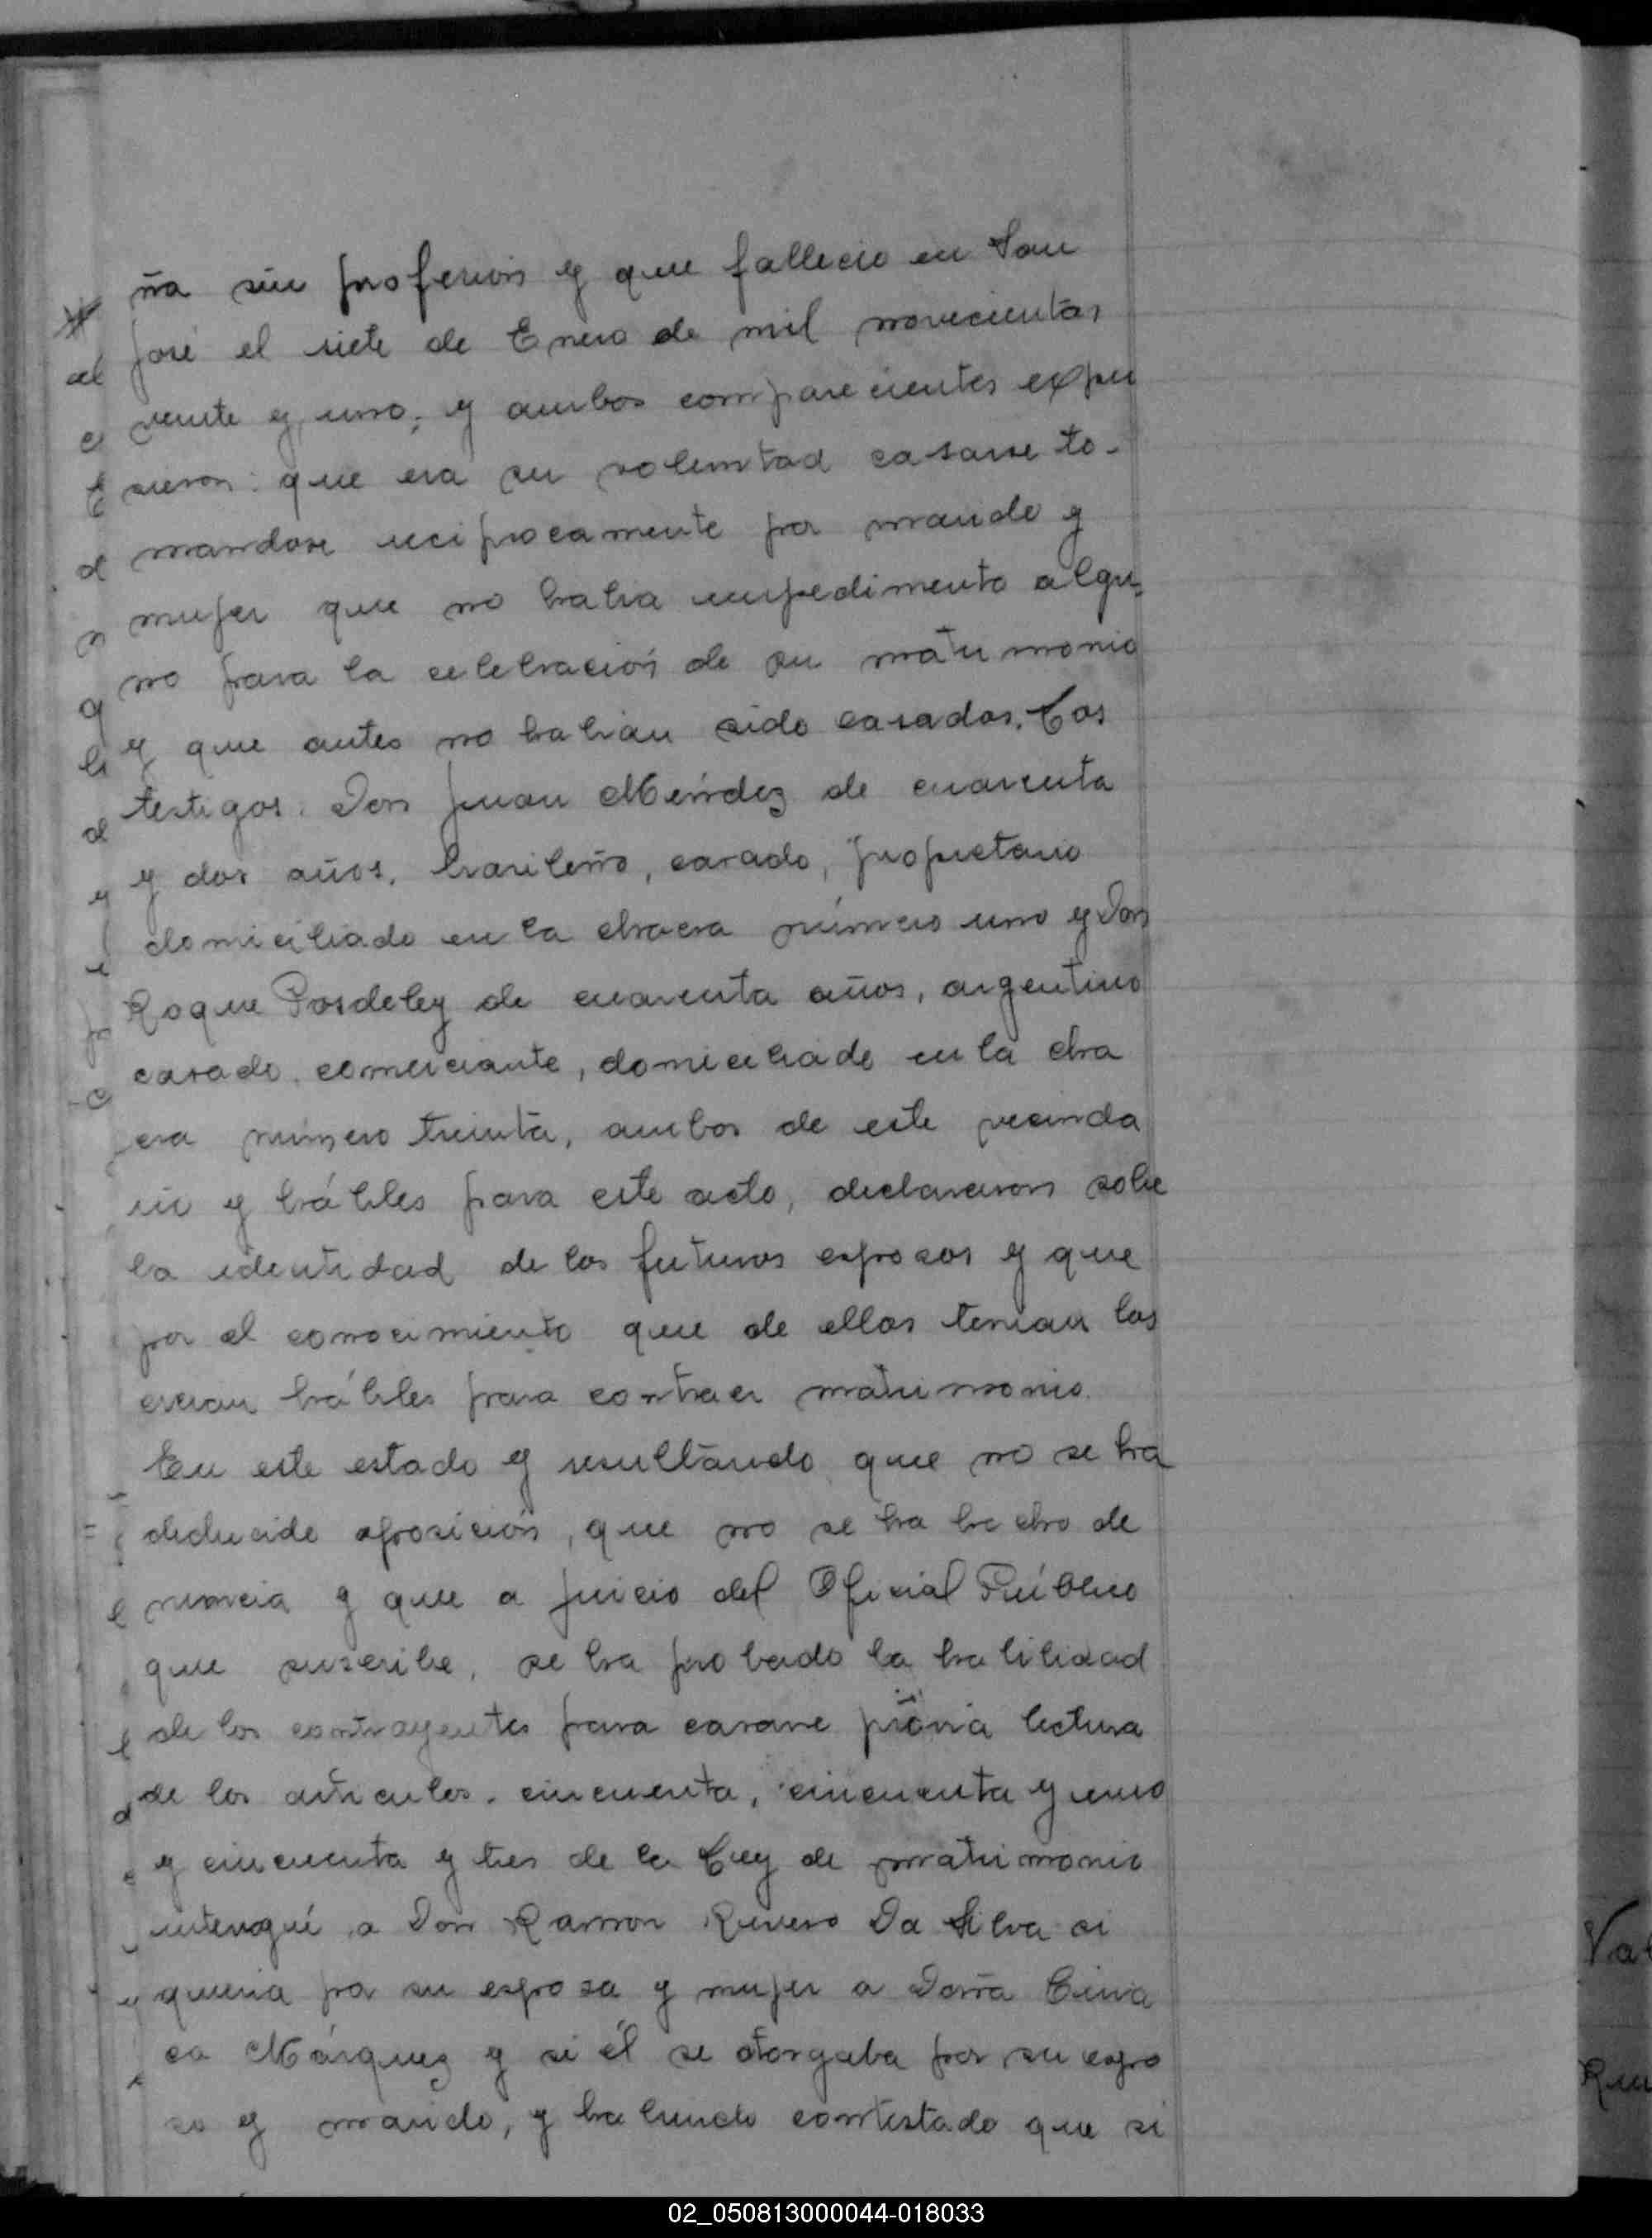 ña sin profesión y que fallecio en San
José el siete de Enero de mil novecientos
veinte y uno; y ambos comparecientes expu
sieron: que era su voluntad casarse to-
mandose reciprocamente por marido y
mujer que no habia impedimento algu-
no para la celebración de su matrimonio
y que antes no habian sido casados. Los
testigos: Don Juan Méndez de cuarenta
y dos años, brasileño, casado, propietario
domiciliado en la chacra número uno y Don
Roque Posdeley de cuarenta años, argentino
casado, comerciante, domiciliado en la cha
cra número treinta, ambos de este vecinda
rio y hábiles para este acto, declararon sobre
la identidad de los futuros esposos y que
por el conocimiento que de ellos tenian los
creian hábiles para contraer matrimonio.
En este estado y resultando que no se ha
deducido oposición, que no se ha hecho de
nuncia y que a juicio del Oficial Público
que suscribe, se ha probado la habilidad
de los contrayentes para casarse previa lectura
de los articulos. cincuenta, cincuenta y uno
y cincuenta y tres de la Ley de matrimonio
interrogué a Don Ramon Rivero Da Silva si
queria por su esposa y mujer a Doña Ciria
ca Márquez y si él se otorgaba por su espo
so y marido, y habiendo contestado que si
02_050813000044-018033